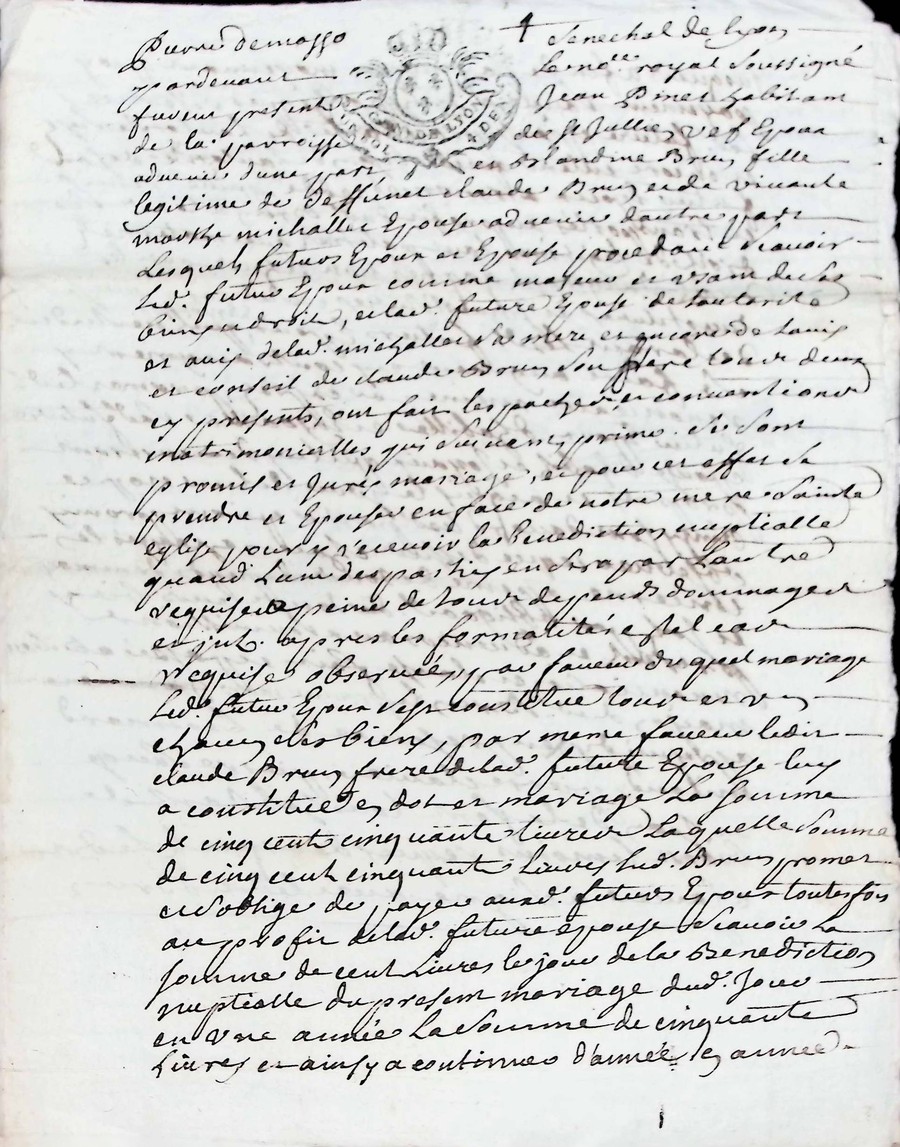 Pierre demasso senechal de Lyon
pardevant le nore royal soussigné
furent present Jean Pinet habitant
de la parroisse de St Jullien vef Epoux
advenir d'une part, et Blandine Brun fille
legitime de deffunct claude Brun et de vivante
marthe michallet Epouse advenir dautre part
Lesquels futurs Epoux et Epouse procedant scavoir
led. futur Epoux comme majeur et usant de ses
biens et droits, et lad. future Epouse de lautorité
et avis de lad. michallet sa mere et encore de lavis
et conseil de claude Brun son frere tous deux
cy presents, ont fait les paches et conventions
matrimonielles qui suivent, primo. se sont
promis et Jurés mariage, et pour cet effet se
prendre et Epouser en face de notre mere Sainte
eglise pour y recevoir la benediction nuptialle
quand L'une des parties en sera par Lautre
requise a peine de tous depends dommages
et int. apres les formalités
requises observées, par faveur du quel mariage
Led. futur Epoux sest constitue tous et un
chacun ses biens, par meme faveur ledit
claude Brun frere de lad. future Epouse luy
a constitué en dot et mariage La somme
de cinq cent cinquante livres Laquelle somme
de cinq cent cinquante Livres led. Brun promet
et soblige de payer aud. futur Epoux toutesfois
au profit de lad. future epouse scavoir La
somme de cent Livres le jour de la Benediction
nuptialle du present mariage dud. Jour
en une année La somme de cinquante
Livres et ainsy a continuer d'année en année